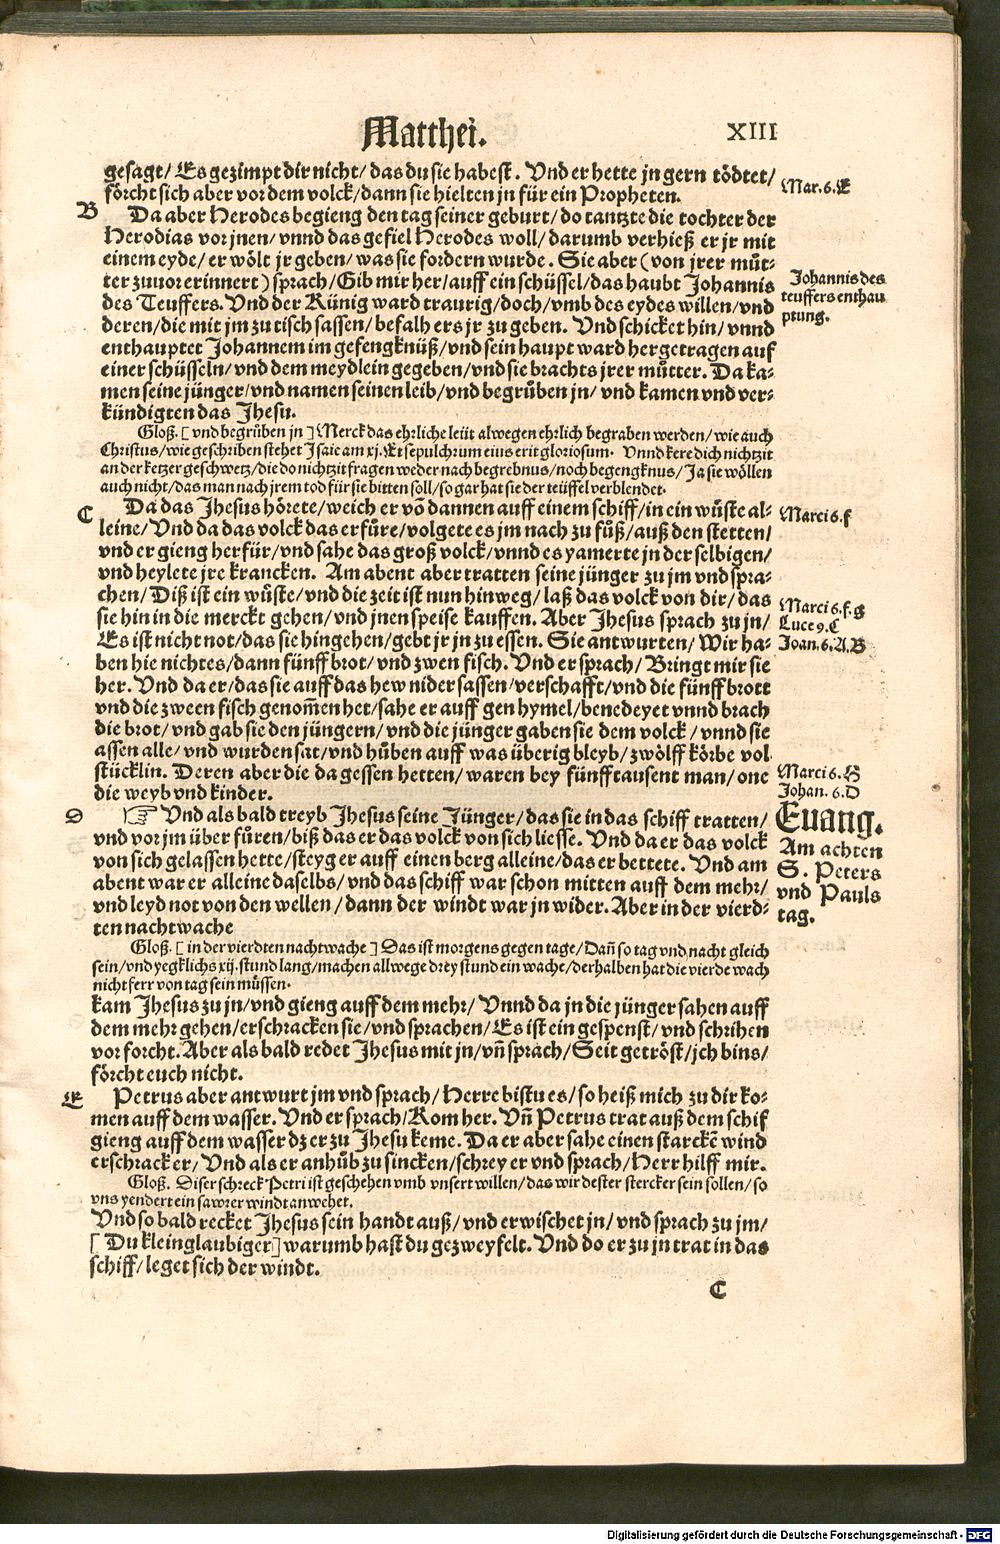 Matthei. XIII
gesagt/ Es gezimpt dir nicht/ das du sie habest. Vnd er hette jn gern tödtet/
förcht sich aber vor dem volck/ dann sie hielten jn für ein Propheten.
Mar. 6. E
B
Da aber Herodes begieng den tag seiner geburt/ do tantzte die tochter der
Herodias vor jnen/ vnnd das gefiel Herodes woll/ darumb verhieß er jr mit
einem eyde/ er wölt jr geben/ was sie fordern wurde. Sie aber (von jrer můt⸗
ter zuuor erinnert) sprach/ Gib mir her/ auff ein schüssel/ das haubt Johannis
des Teuffers. Vnd der Künig ward traurig/ doch/ vmb des eydes willen/ vnd
deren/ die mit jm zu tisch sassen/ befalh ers jr zu geben. Vnd schicket hin/ vnnd
enthauptet Johannem im gefengknüß/ vnd sein haupt ward hergetragen auf
einer schüsseln/ vnd dem meydlein gegeben/ vnd sie brachts jrer můtter. Da ka⸗
men seine jünger/ vnd namen seinen leib/ vnd begrůben jn/ vnd kamen vnd ver⸗
kündigten das Jhesu.
Johannis des
teuffers enthau
ptung.
Gloß. [ vnd begrůben jn ] Merck das ehrliche leüt alwegen ehrlich begraben werden/ wie auch
Christus/ wie geschriben stehet Isaie am xj. Et sepulchrum eius erit gloriosum. Vnnd kere dich nichtzit
an der ketzer geschwetz/ die do nichtzit fragen weder nach begrebnus/ noch begengknus/ Ja sie wöllen
auch nicht/ das man nach jrem tod für sie bitten soll/ so gar hat sie der teüffel verblendet.
C
Da das Jhesus hörete/ weich er võ dannen auff einem schiff/ in ein wůste al⸗
leine/ Vnd da das volck das erfůre/ volgete es jm nach zu fůß/ auß den stetten/
vnd er gieng herfür/ vnd sahe das groß volck/ vnnd es yamerte jn der selbigen/
vnd heylete jre krancken. Am abent aber tratten seine jünger zu jm vnd spra⸗
chen/ Diß ist ein wůste/ vnd die zeit ist nun hinweg/ laß das volck von dir/ das
sie hin in die merckt gehen/ vnd jnen speise kauffen. Aber Jhesus sprach zu jn/
Es ist nicht not/ das sie hingehen/ gebt jr jn zu essen. Sie antwurten/ Wir ha⸗
ben hie nichtes/ dann fünff brot/ vnd zwen fisch. Vnd er sprach/ Bringt mir sie
her. Vnd da er/ das sie auff das hew nider sassen/ verschafft/ vnd die fünff brott
vnd die zween fisch genom̃en het/ sahe er auff gen hymel/ benedeyet vnnd brach
die brot/ vnd gab sie den jüngern/ vnd die jünger gaben sie dem volck/ vnnd sie
assen alle/ vnd wurden sat/ vnd hůben auff was überig bleyb/ zwölff körbe vol
stücklin. Deren aber die da gessen hetten/ waren bey fünff tausent man/ one
die weyb vnd kinder.
Marci 6. f
Marci 6. f. g
Luce 9. C
Joan. 6. A. B
Marci 6. G
Johan. 6. D
D
☞ Vnd als bald treyb Jhesus seine Jünger/ das sie in das schiff tratten/
vnd vor jm über fůren/ biß das er das volck von sich liesse. Vnd da er das volck
von sich gelassen hette/ steyg er auff einen berg alleine/ das er bettete. Vnd am
abent war er alleine daselbs/ vnd das schiff war schon mitten auff dem mehr/
vnd leyd not von den wellen/ dann der windt war jn wider. Aber in der vierd⸗
ten nachtwache
Euang.
Am achten
S. Peters
vnd Pauls
tag.
Gloß. [ in der vierdten nachtwache ] Das ist morgens gegen tage/ Dañ so tag vnd nacht gleich
sein/ vnd yegklichs xij. stund lang/ machen allwege drey stund ein wache/ derhalben hat die vierde wach
nicht ferr von tag sein müssen.
kam Jhesus zu jn/ vnd gieng auff dem mehr/ Vnnd da jn die jünger sahen auff
dem mehr gehen/ erschracken sie/ vnd sprachen/ Es ist ein gespenst/ vnd schrihen
vor forcht. Aber als bald redet Jhesus mit jn/ vñ sprach/ Seit getröst/ jch bins/
förcht euch nicht.
E
Petrus aber antwurt jm vnd sprach/ Herre bistu es/ so heiß mich zu dir ko⸗
men auff dem wasser. Vnd er sprach/ Kom her. Vñ Petrus trat auß dem schif
gieng auff dem wasser dz er zu Jhesu keme. Da er aber sahe einen starckẽ wind
erschrack er/ Vnd als er anhůb zu sincken/ schrey er vnd sprach/ Herr hilff mir.
Gloß. Diser schreck Petri ist geschehen vmb vnsert willen/ das wir dester stercker sein sollen/ so
vns yendert ein sawrer windt anwehet.
Vnd so bald recket Jhesus sein handt auß/ vnd erwischet jn/ vnd sprach zu jm/
[ Du kleinglaubiger] warumb hast du gezweyfelt. Vnd do er zu jn trat in das
schiff/ leget sich der windt.
C
Digitalisierung gefördert durch die Deutsche Forschungsgemeinschaft - DFG